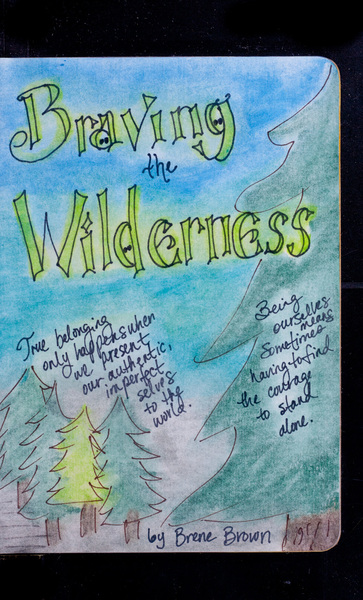 Braving
the
Wilderness
True belonging
only happens when
we present
our authentic,
imperfect
selves
to the
world.
Being
ourselves
means
sometimes
having to find
the courage
to stand
alone.
by Brene Brown